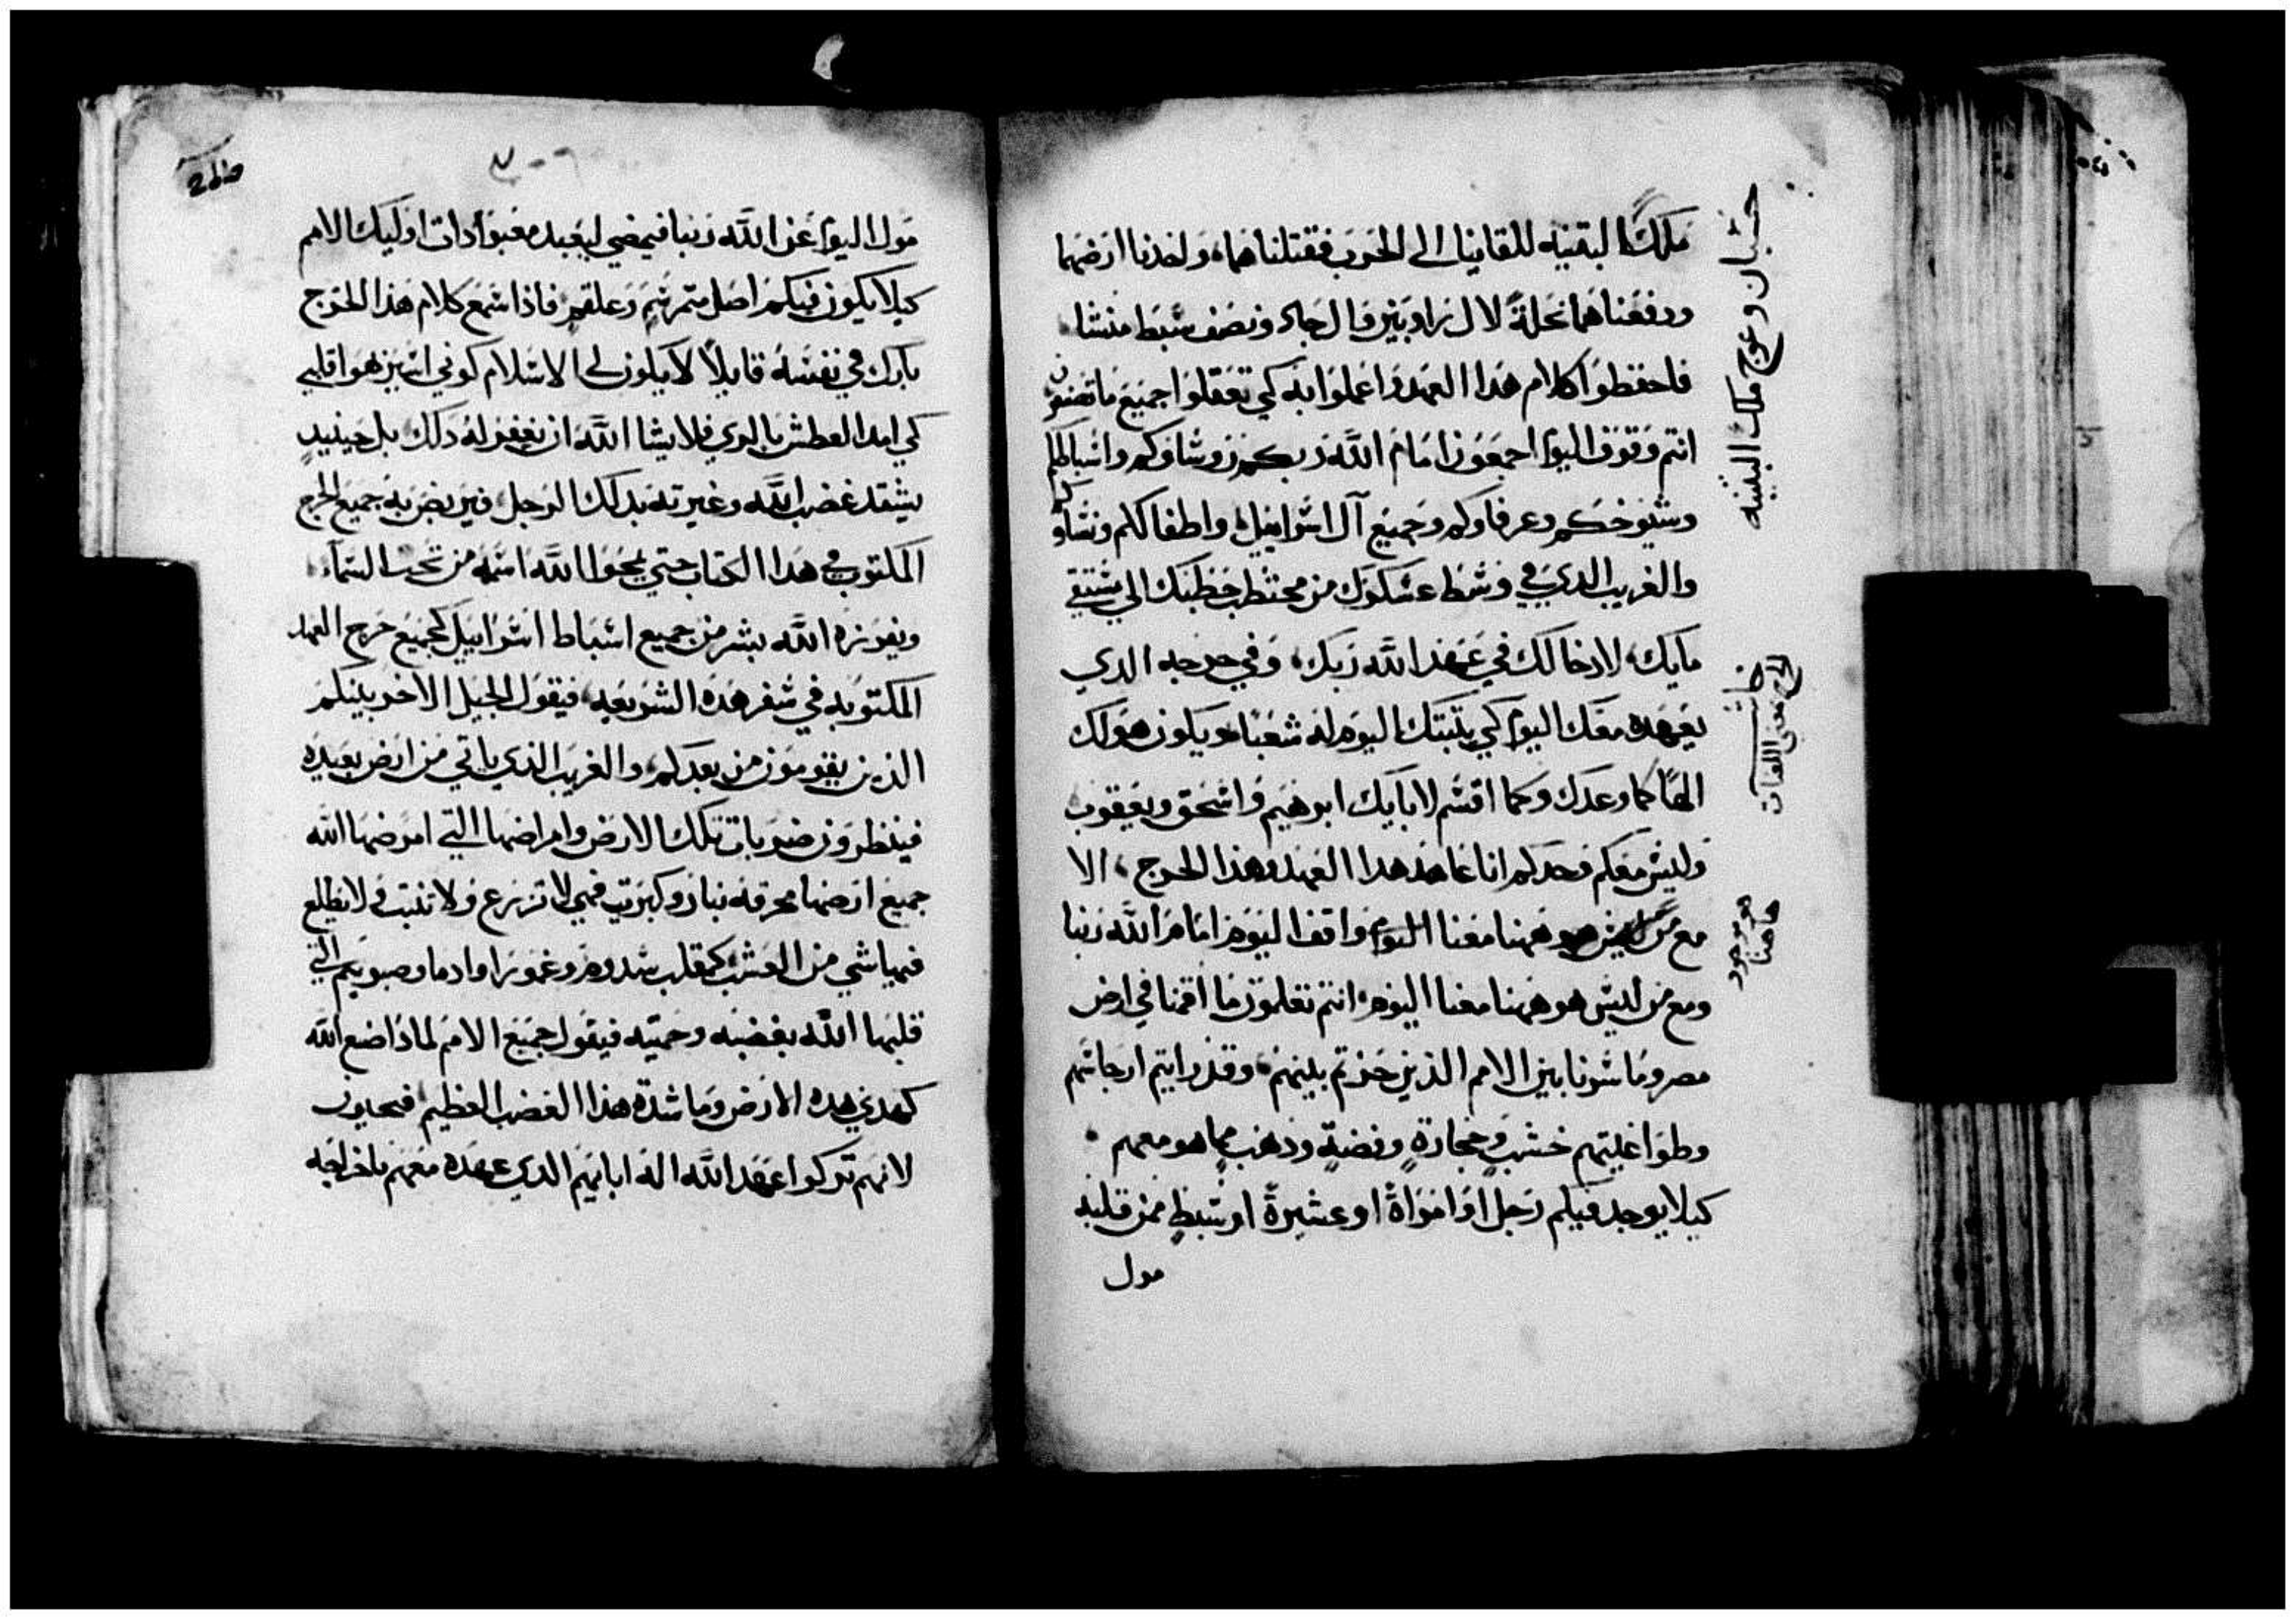 ملكا البقنيه للقاينا الى الحرب فقتلناهما، واخدنا ارضهما
ودفعناهما نحلةً لال راوبين وال جاد ونصف سبط منشا
فاحفظوا كلام هدا العهد واعملوا به كي تعقلوا جميع ما تصنعون
انتم وقوف اليوم اجمعون امام الله ربكم روساوكم واسباطكم
وشيوخكم وعرفاوكم وجميع آل اسراييل واطفالكم ونساوكم
والغريب الدي في وسط عسكرك من محتطب حطبك الي مستقي
مايك، لادخالك في عهد الله ربك، وفي حرجه الدي
يعهده معك اليوم كي يثبتك اليوم له شعبًا ويكون هو لك
الهًا كما وعدك وكما اقسم لابايك ابرهيم واسحق ويعقوب
وليس معكم وحدكم انا عاهد هدا العهد وهذا الحرج، الا
مع من هو ههنا معنا اليوم واقف اليوم امام الله ربنا
ومع من ليس هو ههنا معنا اليوم، انتم تعلمون ما اقمنا في ارض
مصر وما سرنا بين الامم الذين جزتم بينهم، وقد رايتم ارجاسهم
وطواغيتهم خشبٍ وحجارةٍ وفضةٍ ودهبٍ مما هو معهم
كيلا يوجد فيكم رجل او امراة او عشيرة او سبط ممن قلبه
مول
حشبان وعوج ملك البثنيه
هو موجود
هاهنا
مول اليوم عن الله ربنا فيمضي ليعبد معبودات اوليك الامم
كيلا يكون فيكم اصل متمر سم وعلقم فاذا سمع كلام هذا الحرج
بارك في نفسه قايلاً لا يكون لي الاسلام كوني اسير هوا قلبي
كي امد العطش بالري فلا يشا الله ان يغفر له دلك بل حينيدٍ
يشتد غضب الله وغيرته بدلك الرجل فيربض به جميع الحرج
المكتوب في هدا الكتاب حتي يمحوا الله اسمه من تحت السماء
ويفرزه الله بشر من جميع اسباط اسراييل كجميع حرج العهد
المكتوبه في سفر هده الشريعه، فيقول الجيل الاخر بنيكم
الذين يقومون من بعدكم، والغريب الذي ياتي من ارض بعيده
فينظرون ضربات تلك الارض وامراضها التي امرضها الله
جميع ارضها محرقه بنار وكبريت فهي لا تزرع ولا تنبت ولا يطلع
فيها شي من العشب كمقلب سدوم وغمورا وادما وصبويم التي
قلبها الله بغضبه وحميته فيقول جميع الامم لماذا صنع الله
كهدي هده الارض وما شدة هذا الغضب العظيم، فيجيبون
لانهم تركوا عهد الله اله ابايهم الدي عهده معهم باخراجه